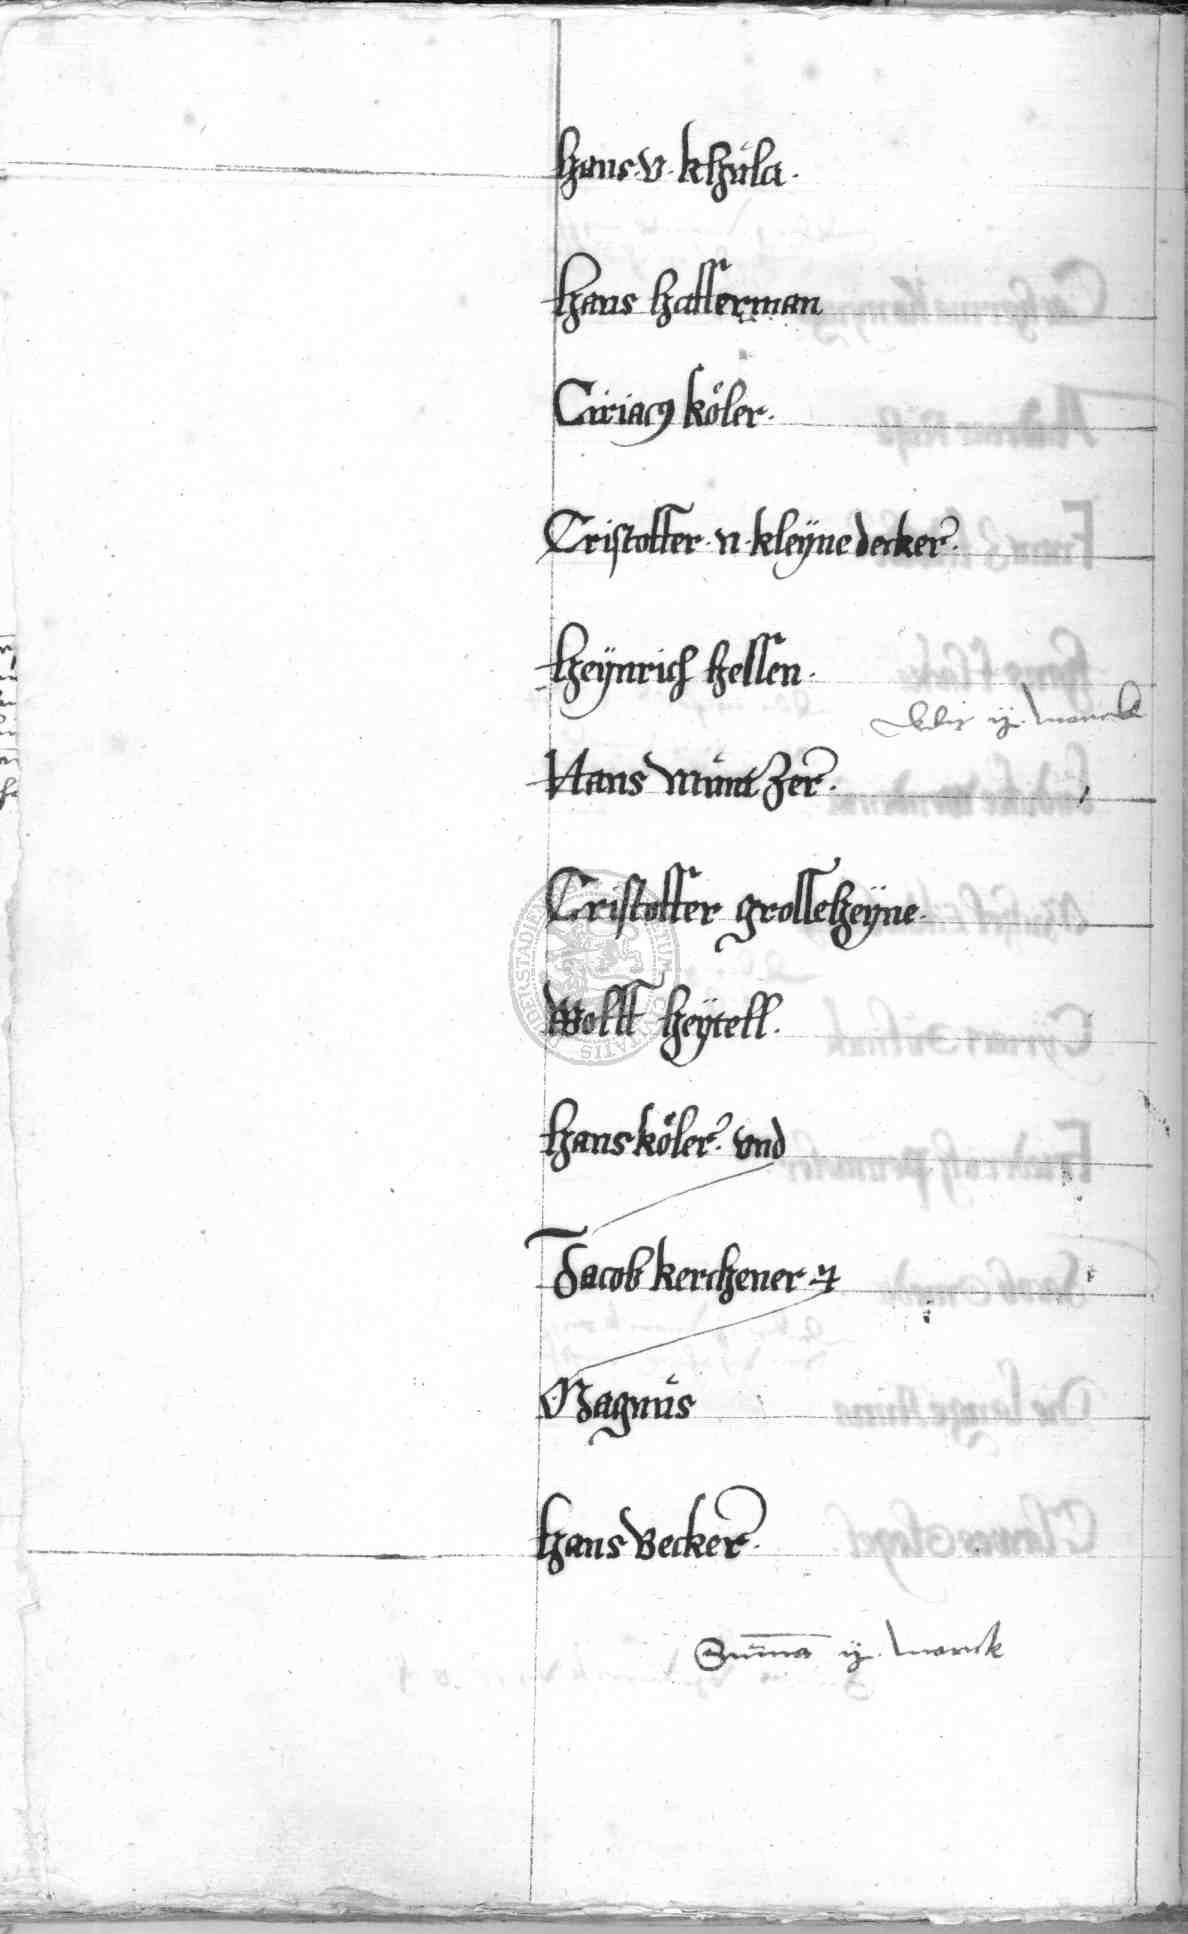 Hans · v · khula ·
Hans Hafferman
Ciriacꝯ köler ·
Cristoffer · v · kleÿnedecker ·
Heÿnrich Hessen ·
Dedit ij marck
Hans Müntzer ·
Cristoffer grosseheÿne ·
Wolff Heÿtell ·
Hans köler · vnd
Jacob kerchener
Magnus
Hans Becker ·
Summa ij marck